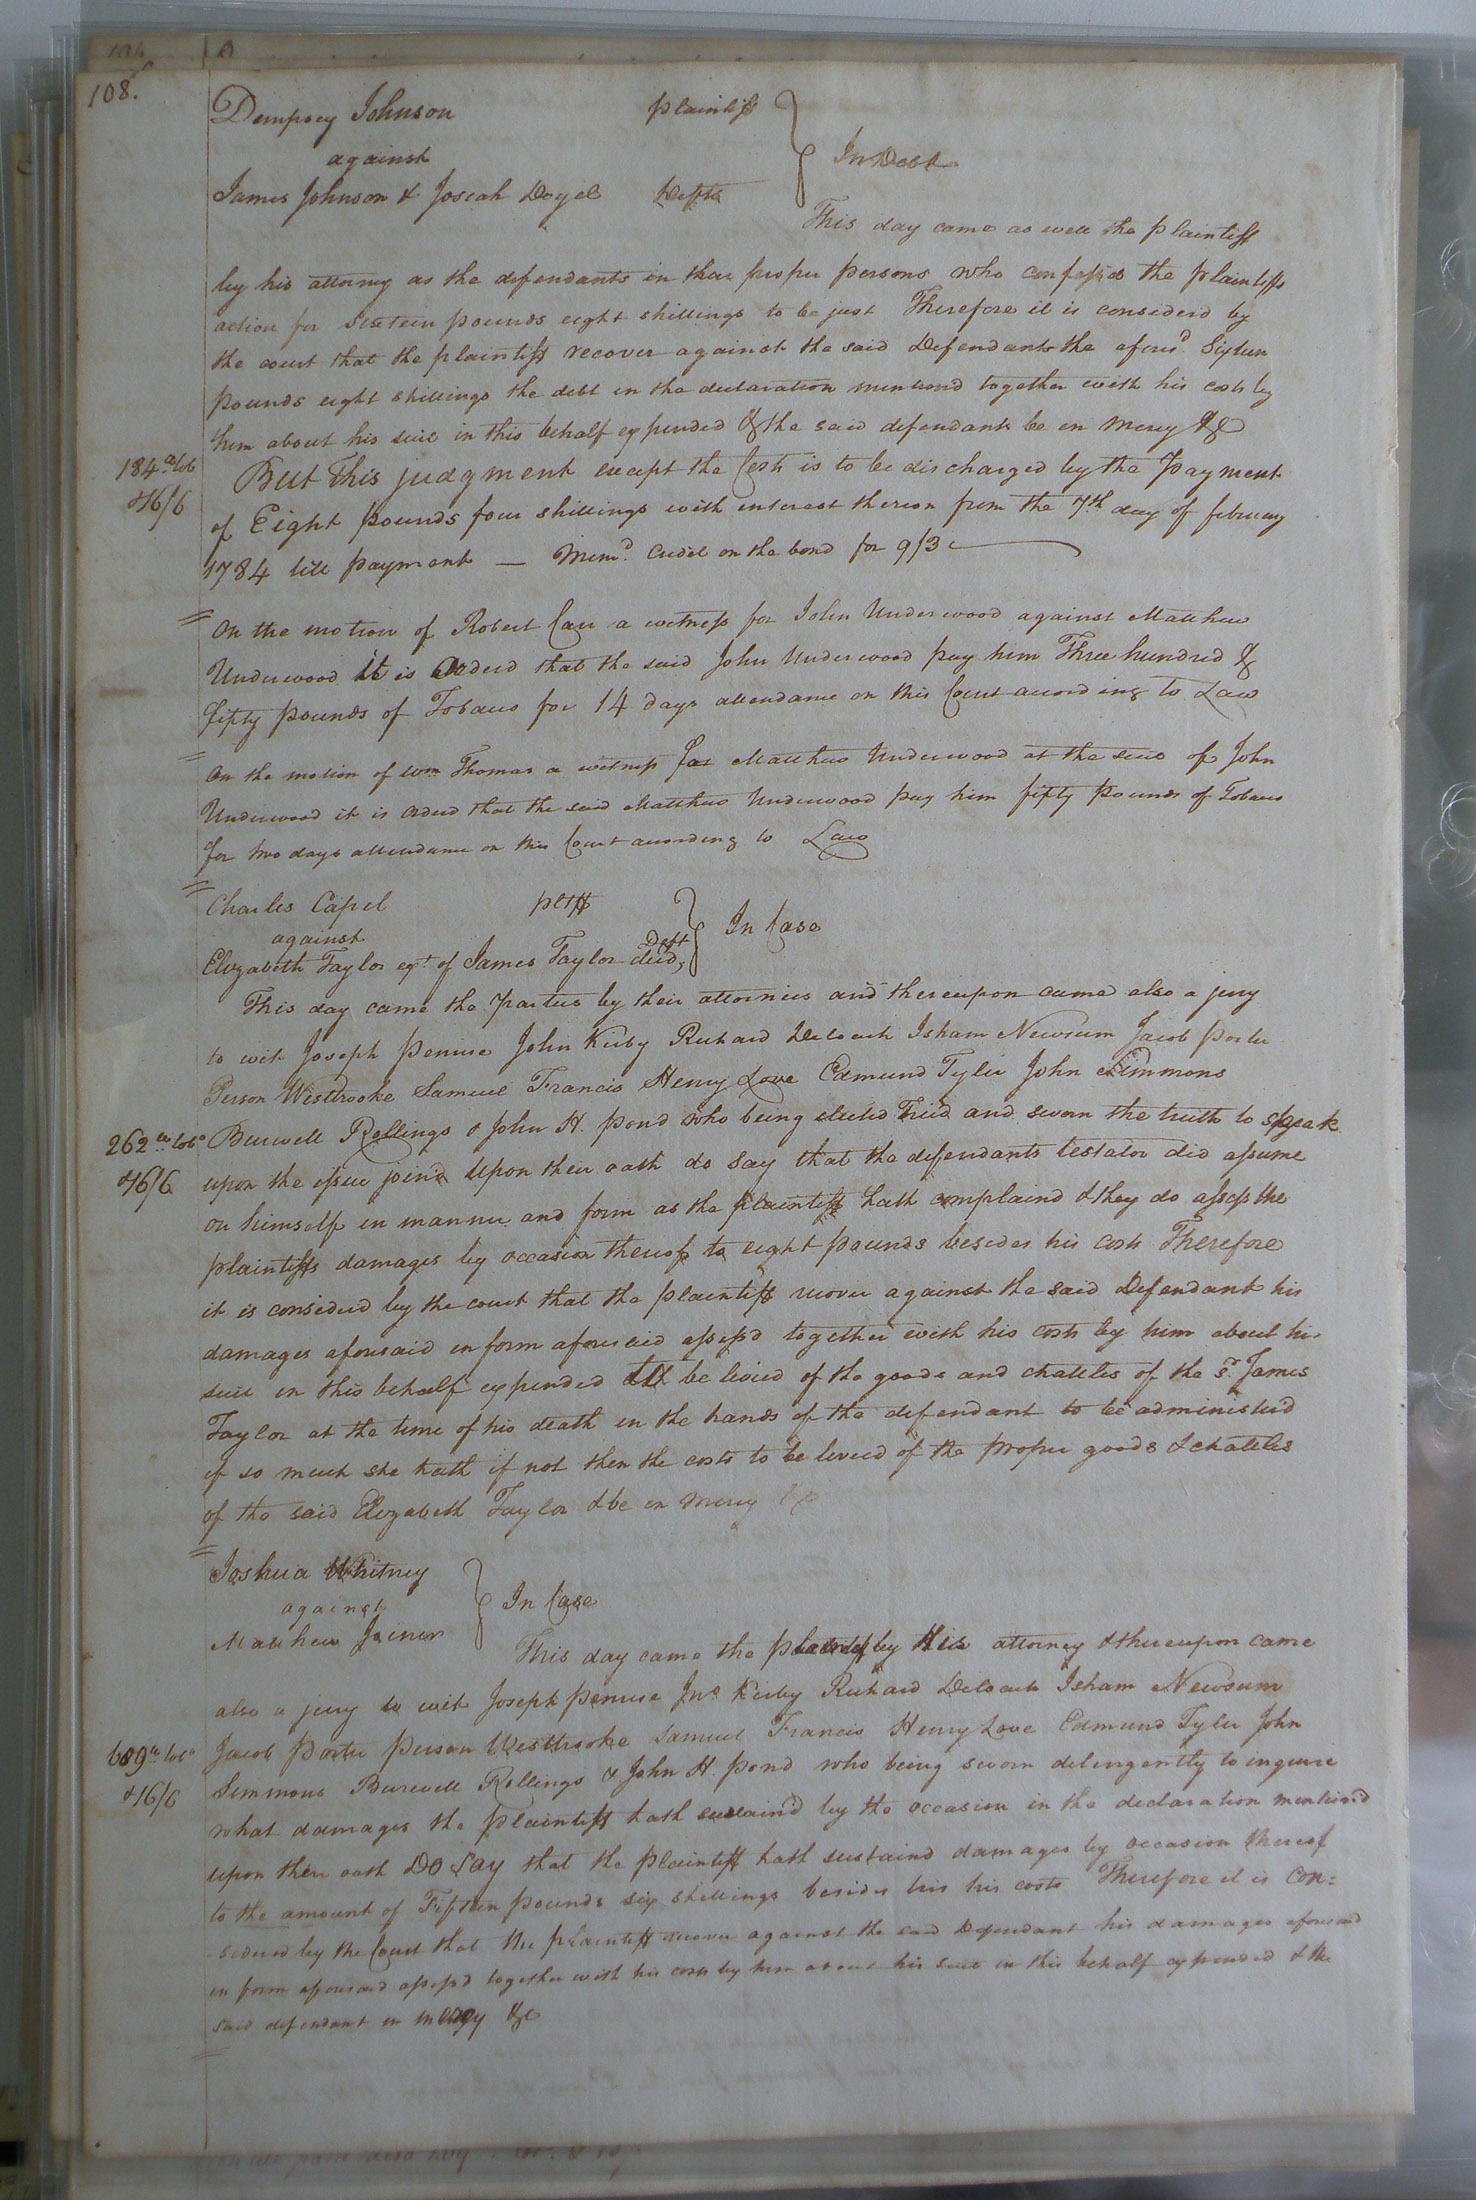 108.
Dempsey Johnson plaintiff
against In Debt
James Johnson & Josiah Doyel Defts
This day came as well the plaintiff
by his attorney as the defendants in their proper persons who confessed the plaintiffs
action for sixteen pounds eight shillings to be just Therefore it is considerd by
the court that the plaintiff recover against the said Defendants the aforesd. Sixteen
pounds eight shillings the debt in the declaration mentiond together with his costs by
him about his suit in this behalf expended & the said defendants be in mercy &c
184 lb tob
&16/6
But This judgment except the Costs is to be discharged by the Payment
of Eight pounds four shillings with interest thereon from the 7th day of february
1784 till payment — Memd. Credit on the bond for 9/3
On the motion of Robert Carr a witness for John Underwood against Matthew
Underwood it is Orderd that the said John Underwood pay him Three hundred &
fifty pounds of Tobacco for 14 days attendance on this Court according to Law
On the motion of Wm Thomas a witness for Matthew Underwood at the suit of John
Underwood it is orderd that the said Matthew Underwood pay him fifty pounds of Tobacco
for two days attendance on this Court according to Law
Charles Capel pltff
against Deft In Case
Elizabeth Taylor ext. of James Taylor decd,
This day came the parties by their attornies and thereupon came also a jury
to wit Joseph Pennie John Kirby Richard Deloach Isham Newsum Jacob Porter
Person Westbrooke Samuel Francis Henry Love Edmund Tyler John Simmons
262 lb tobo
&16/6
Burwell Rollings & John H. Pond who being elected Tried and sworn the truth to speak
upon the issue joind Upon their oath do say that the defendants testator did assume
on himself in manner and form as the plaintiff hath complaind & they do assess the
plaintiffs damages by occasion thereof to eight pounds besides his costs Therefore
it is considerd by the court that the plaintiff recover against the said Defendant his
damages aforesaid in form aforesaid assessd together with his costs by him about his
suit in this behalf expended to be levied of the goods and chattles of the sd. James
Taylor at the time of his death in the hands of the defendant to be administerd
if so much she hath if not then the costs to be levied of the proper goods & chattles
of the said Elizabeth Taylor & be in mercy &c
Joshua Whitney
against In Case
Matthew Joiner
This day came the plaintiff by His attorney & thereupon came
also a jury to wit Joseph Pennie Jno Kirby Richard Deloach Isham Newsum
689 lb tobo
&16/6
Jacob Porter Person Westbrooke Samuel Francis Henry Love Edmund Tyler John
Simmons Burwell Rollings & John H. Pond who being sworn deligently to inquire
what damages the plaintiff hath sustaind by the occasion in the declaration mentiond
upon their oath DO Say that the plaintiff hath sustaind damages by occasion thereof
to the amount of Fifteen pounds six shillings besides his his costs Therefore it is con=
sidered by the Court that the plaintiff recover against the said Defendant his damages aforesaid
in form aforesaid assessd together with his costs by him about his suit in this behalf expended & the
said defendant in mercy &c